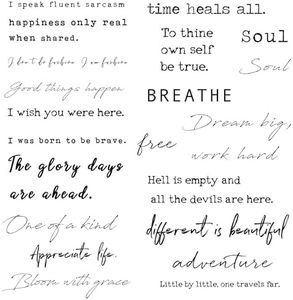 I speak fluent sarcasm
happiness only real
when shared.
I don't do fashion I am fashion
Good things happen
I wish you were here.
I was born to be brave.
The glory days
are ahead.
One of a kind
Appreciate life.
Bloom with grace
time heals all.
To thine
own self
be true.
Soul
Soul
BREATHE
Dream big,
work hard
free
Hell is empty and
all the devils are here.
different is beautiful
adventure
Little by little, one travels far.